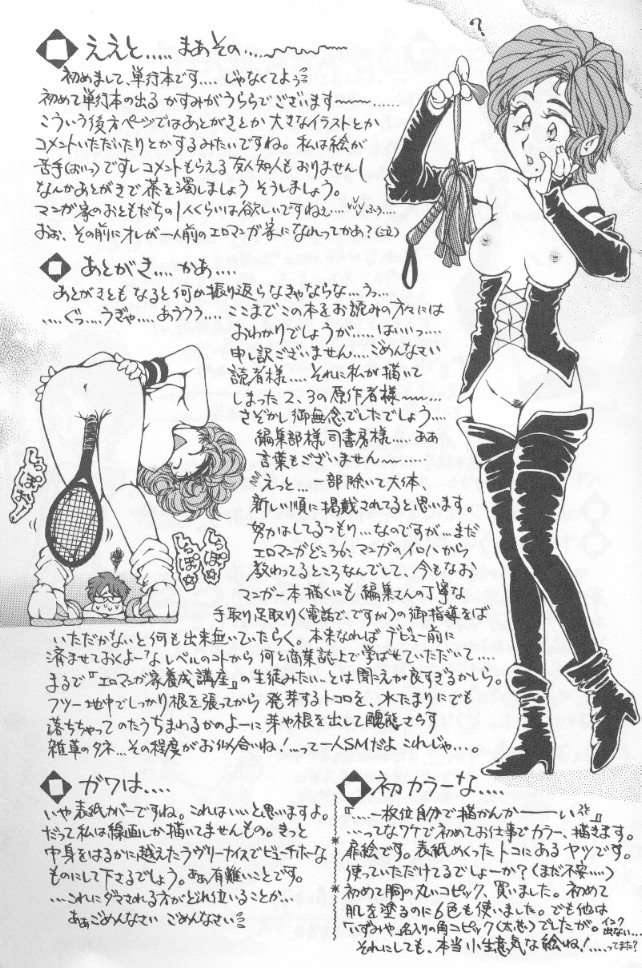 ええと.....まあその.....
初めまして、単行本です....じゃなくてよぅ
初めて単行本の出る かすみがうららでございます〜〜〜......
こういう後方ページではあとがきとか大きなイラストとか
コメントいただいたりとかするみたいですね。私は絵が
苦手(おいっ)ですしコメントもらえる友人知人もおりませんし
なんかあとがきで茶を濁しましょう そうしましょう。
マンガ家のおともだちの1人くらいは欲しいですねぇ...
おぉ、その前にオレが一人前のエロマンガ家になれってかぁ?
あとがき....かあ....
あとがきともなると何か振り返らなきゃならな...うっ...
....ぐっ...うぎゃ....あううう....ここまでこの本をお読みの方々には
おわかりでしょうが.....はいいっ....
申し訳ございません....ごめんなさい
読者様....それに私が描いて
しまった2、3の原作者様〜〜...
さぞかし御無念でしたでしょう....
編集部様、司書房様.....ああ
言葉もございません〜〜....
えっと...一部除いて大体、
新しい順に掲載されてると思います。
努力はしてるつもり...なのですが...まだ
エロマンガどころか、マンガのイロハから
教わってるところなんでして、今もなお
マンガ一本描くにも編集さんの丁寧な
手取り足取り(電話で、ですが)の御指導をば
いただかないと何も出来無いていたらく。本来なれば デビュー前に
済ませておくよーなレベルのコトから 何と商業誌上で学ばせていただいて....
まるで『エロマンガ家養成講座』の生徒みたい...とは聞こえが良すぎるかしら。
フツー地中でしっかり根を張ってから 発芽するトコロを、水たまりにでも
落ちちゃってのたうちまわるかのよーに芽や根を出して醜態さらす
雑草のタネ...その程度がお似合いね!...って一人SMだよ これじゃ...。
しっぽ
しっぽ
ガワは....
いや表紙カバーですね。これはいいと思いますよ。
だって私は線画しか描いてませんもの。きっと
中身をはるかに越えたラヴリーナイスでビューチホーな
ものにして下さるでしょう。あぁ有難いことです。
....これにダマされる方がどれ位いることか...
あぁごめんなさい ごめんなさい
初カラーな....
『....一枚位自分で描かんかーーい』
....ってなワケで初めてお仕事でカラー、描きます。
扉絵です。表紙めくったトコにあるヤツです。
使っていただけてるでしょーか?(まだ不安....)
初めて胸の丸いコピック、買いました。初めて
肌を塗るのに6色も使いました。でも他は
「いずみや」名入りの角コピック(大古)でしたが。インク出ない...
それにしても、本当小生意気な絵ね!....ってまた?
?